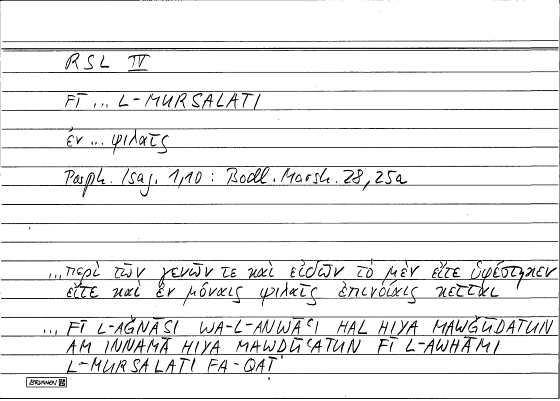 RSL IV
FĪ ... L-MURSALATI
ἐν ... ψιλαῖς
Porph. Isag. 1,10 : Bodl. Marsh. 28, 25a
... περὶ τῶν γενῶν τε καὶ εἰδῶν τὸ μὲν εἴτε ὑφέστηκεν
εἴτε καὶ ἐν μόναις ψιλαῖς ἐπινοίαις κεῖται
... FĪ L-AǦNĀSI WA-L-ANWĀʿI HAL HIYA MAWǦŪDATUN
AM INNAMĀ HIYA MAWḌŪʿATUN FĪ L-AWHĀMI
L-MURSALATI FA-QAṬ